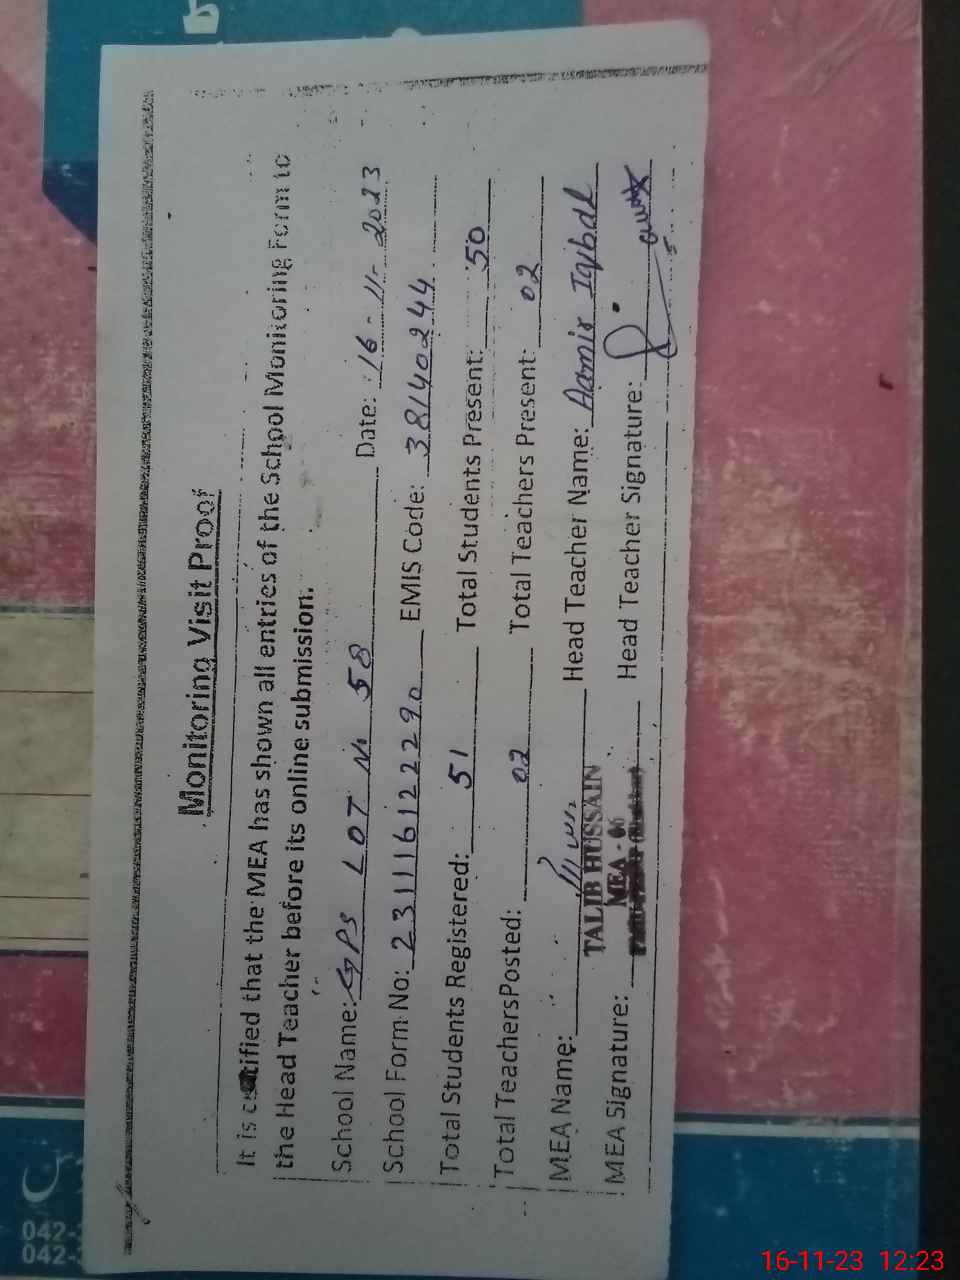 Monitoring Visit Proof
It is certified that the MEA has shown all entries of the School Monitoring Form to
the Head Teacher before its online submission.
School Name: GPS LOT No 58 Date: 16-11-2023
School Form No: 23111612229 EMIS Code: 38140244
Total Students Registered: 51 Total Students Present: 50
Total TeachersPosted: 02 Total Teachers Present: 02
MEA Name: Head Teacher Name: Aamir Iqbal
TALIB HUSSAIN
MEA - 06
MEA Signature: Head Teacher Signature:
042-
042-
16-11-23 12:23